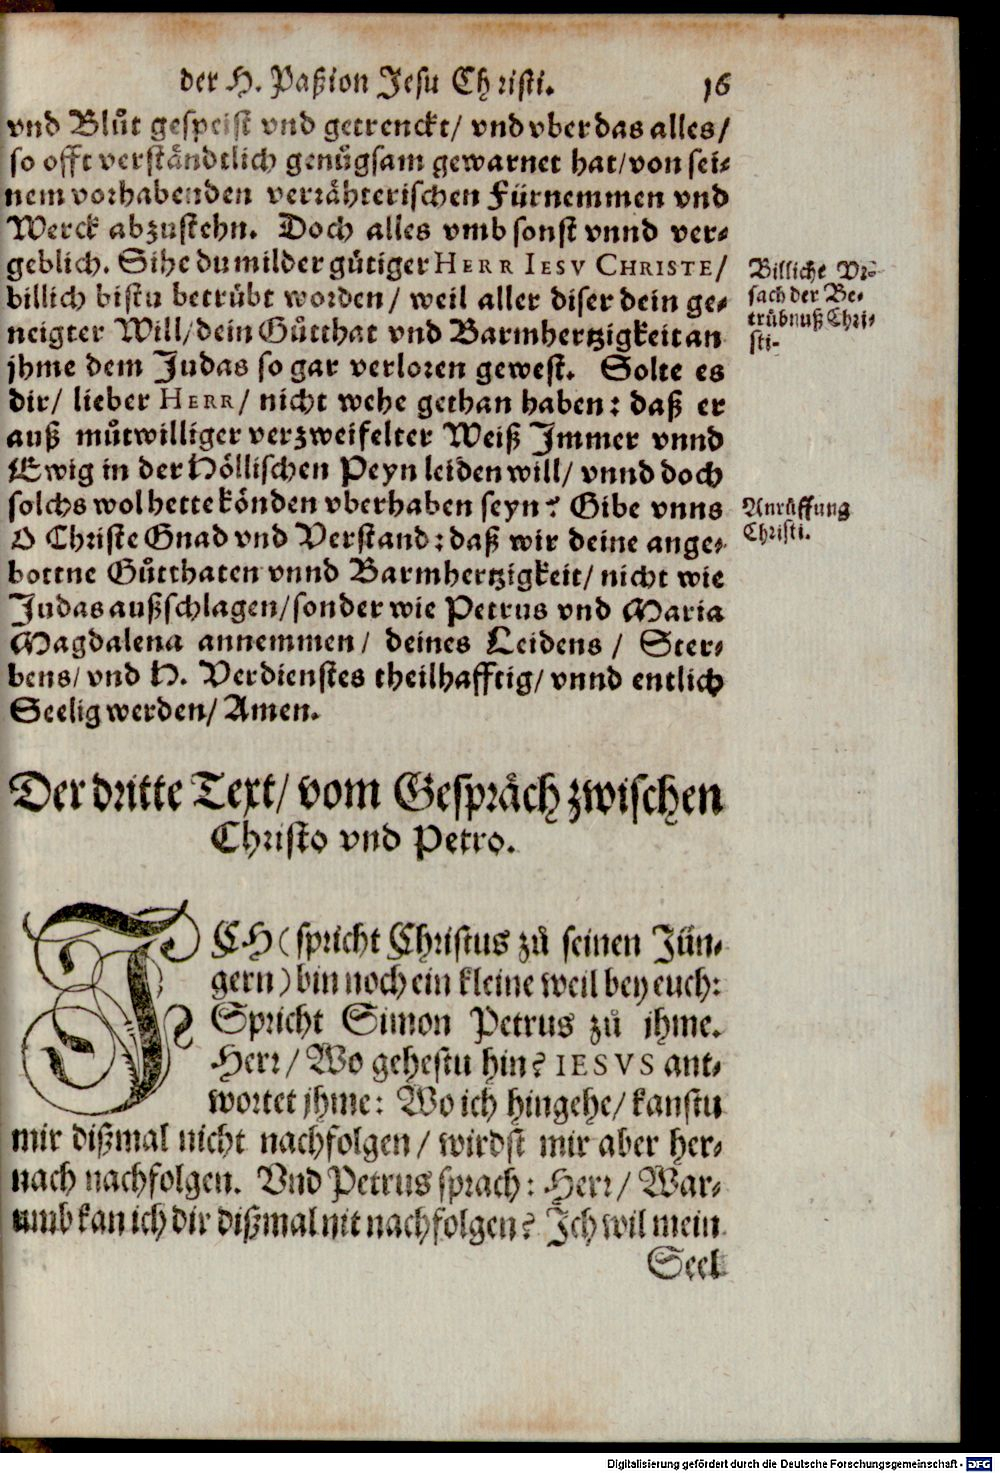 der H. Paßion Jesu Christi. 16
vnd Blůt gespeist vnd getrenckt/ vnd vber das alles/
so offt verståndtlich genůgsam gewarnet hat/ von sei-
nem vorhabenden verrähterischen Fürnemmen vnd
Werck abzustehn. Doch alles vmb sonst vnnd ver-
geblich. Sihe du milder gůtiger HERR IESV CHRISTE/
billich bistu betrůbt worden/ weil aller diser dein ge-
neigter Will/ dein Gůtthat vnd Barmhertzigkeit an
jhme dem Judas so gar verloren gewest. Solte es
dir/ lieber HERR/ nicht wehe gethan haben: daß er
auß můtwilliger verzweifelter Weiß Jmmer vnnd
Ewig in der Höllischen Peyn leiden will/ vnnd doch
solchs wol hette könden vberhaben seyn? Gibe vnns
O Christe Gnad vnd Verstand: daß wir deine ange-
bottne Gůtthaten vnnd Barmhertzigkeit/ nicht wie
Judas außschlagen/ sonder wie Petrus vnd Maria
Magdalena annemmen/ deines Leidens/ Ster-
bens/ vnd H. Verdienstes theilhafftig/ vnnd entlich
Seelig werden/ Amen.
Billiche Vr-
sach der Be-
trůbnuß Chri-
sti.
Anrůffung
Christi.
Der dritte Text/ vom Gespräch zwischen
Christo vnd Petro.
JCH (spricht Christus zů seinen Jün-
gern) bin noch ein kleine weil bey euch:
Spricht Simon Petrus zů jhme.
Herr/ Wo gehestu hin? IESVS ant-
wortet jhme: Wo ich hingehe/ kanstu
mir dißmal nicht nachfolgen/ wirdst mir aber her-
nach nachfolgen. Vnd Petrus sprach: Herr/ War-
umb kan ich dir dißmal nit nachfolgen? Jch wil mein
Seel
Digitalisierung gefördert durch die Deutsche Forschungsgemeinschaft - DFG